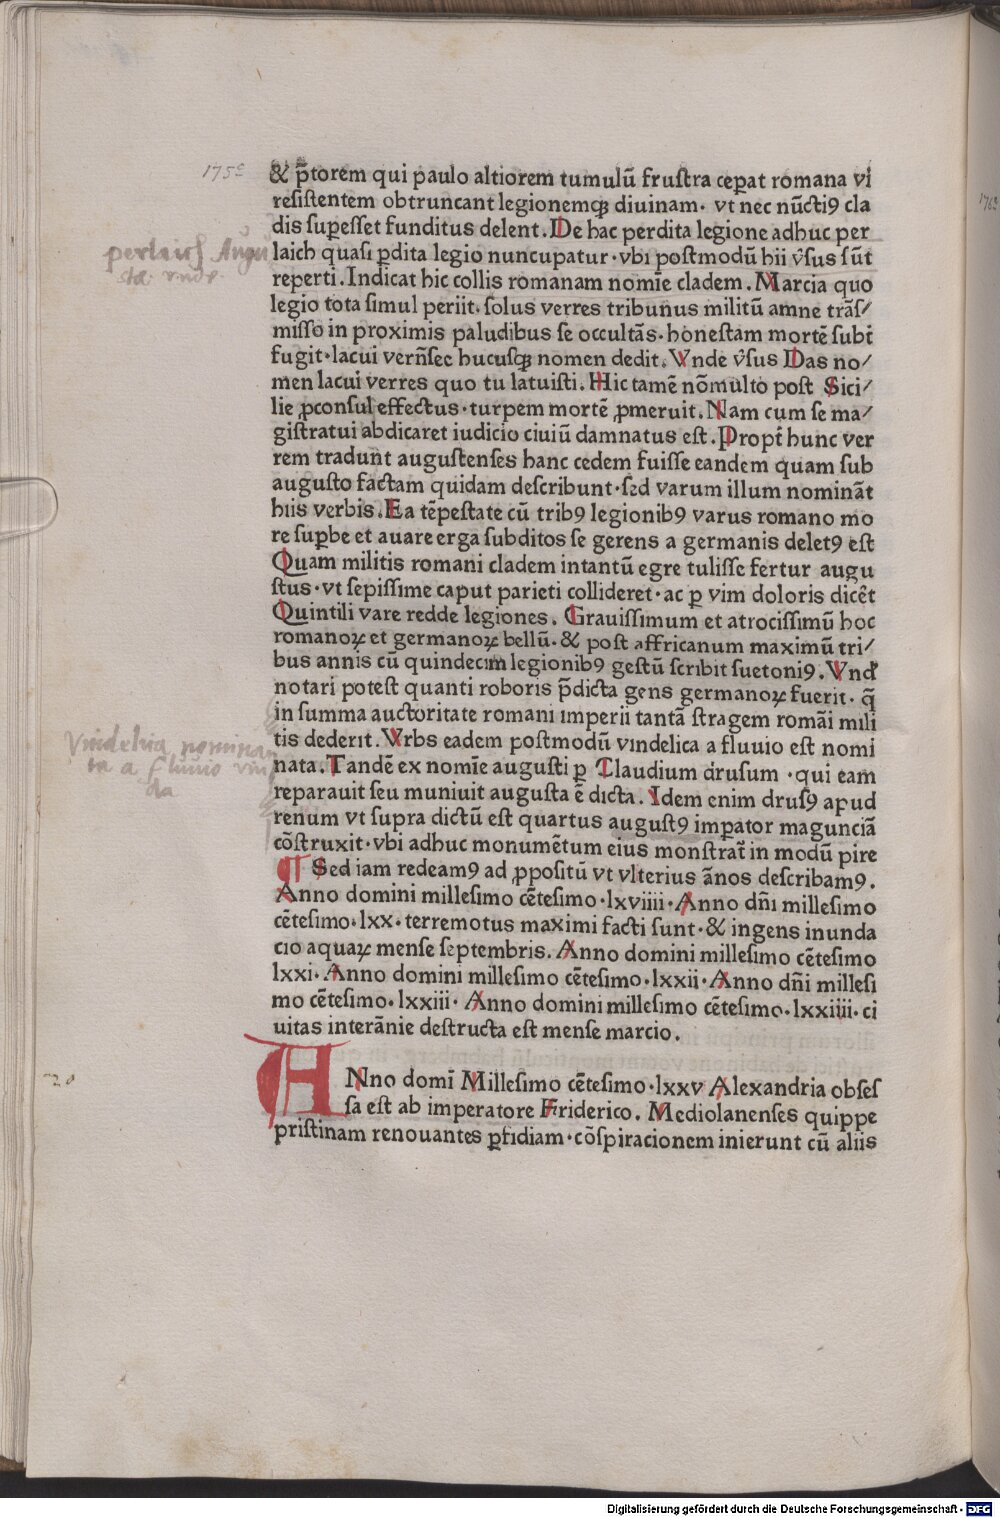 175ᵉ
& p̃torem qui paulo altiorem tumulū frustra ceperat romana vi
resistentem obtruncant legionemqȝ diuinam· vt nec nūctiꝯ cla
dis supesset funditus delent. De hac perdita legione adhuc per
laich quasi ꝑdita legio nuncupatur·vbi postmodū hii v̄sus sūt
reperti. Indicat hic collis romanam nomīe cladem. Marcia quo
legio tota simul periit· solus verres tribunus militū amne trās/
misso in proximis paludibus se occultās·honestam mortē subt̄
fugit·lacui vern̄sec hucusqȝ nomen dedit. Vnde v̄sus Das no/
men lacui verres quo tu latuisti. Hic tamē nōmulto post Sici/
lie ꝓconsul effectus·turpem mortē ꝓmeruit. Nam cum se ma/
gistratui abdicaret iudicio ciuiū damnatus est. Propt̄ hunc ver
rem tradunt augustenses hanc cedem fuisse eandem quam sub
augusto factam quidam describunt·sed varum illum nomināt
hiis verbis. Ea tēpestate cū tribꝯ legionibꝯ varus romano mo
re suꝑbe et auare erga subditos se gerens a germanis deletꝯ est
Quam militis romani cladem intantū egre tulisse fertur augu
stus·vt sepissime caput parieti collideret·ac ꝑ vim doloris dicēt
Quintili vare redde legiones. Grauissimum et atrocissimū hoc
romanoꝝ et germanoꝝ bellū·& post affricanum maximū tri/
bus annis cū quindecim legionibꝯ gestū scribit suetoniꝯ. Vnđ
notari potest quanti roboris p̄dicta gens germanoꝝ fuerit· q̄
in summa auctoritate romani imperii tantā stragem romāi mili
tis dederit. Vrbs eadem postmodū vindelica a fluuio est nomi
nata. Tandē ex nomīe augusti ꝑ Claudium drusum ·qui eam
reparauit seu muniuit augusta ē dicta. Idem enim drusꝯ apud
renum vt supra dictū est quartus augustꝯ imꝑator magunciā
cōstruxit·vbi adhuc monumētum eius monstrat̄ in modū pire
¶ Sed iam redeamꝯ ad ꝓpositū vt vlterius ānos describamꝯ.
Anno domini millesimo cētesimo·lxviiii·Anno dn̄i millesimo
cētesimo·lxx·terremotus maximi facti sunt·& ingens inunda
cio aquaꝝ mense septembris. Anno domini millesimo cētesimo
lxxi·Anno domini millesimo cētesimo·lxxii·Anno dn̄i millesi
mo cētesimo·lxxiii· Anno domini millesimo cētesimo·lxxiiii·ci
uitas interānie destructa est mense marcio.
ANno domī Millesimo cētesimo·lxxv Alexandria obses
sa est ab imperatore Friderico. Mediolanenses quippe
pristinam renouantes ꝑfidiam·cōspiracionem inierunt cū aliis
perleich Augu
sta vnde
Vindelica nominan
ta a fluuio vin
da
Digitalisierung gefördert durch die Deutsche Forschungsgemeinschaft - DFG